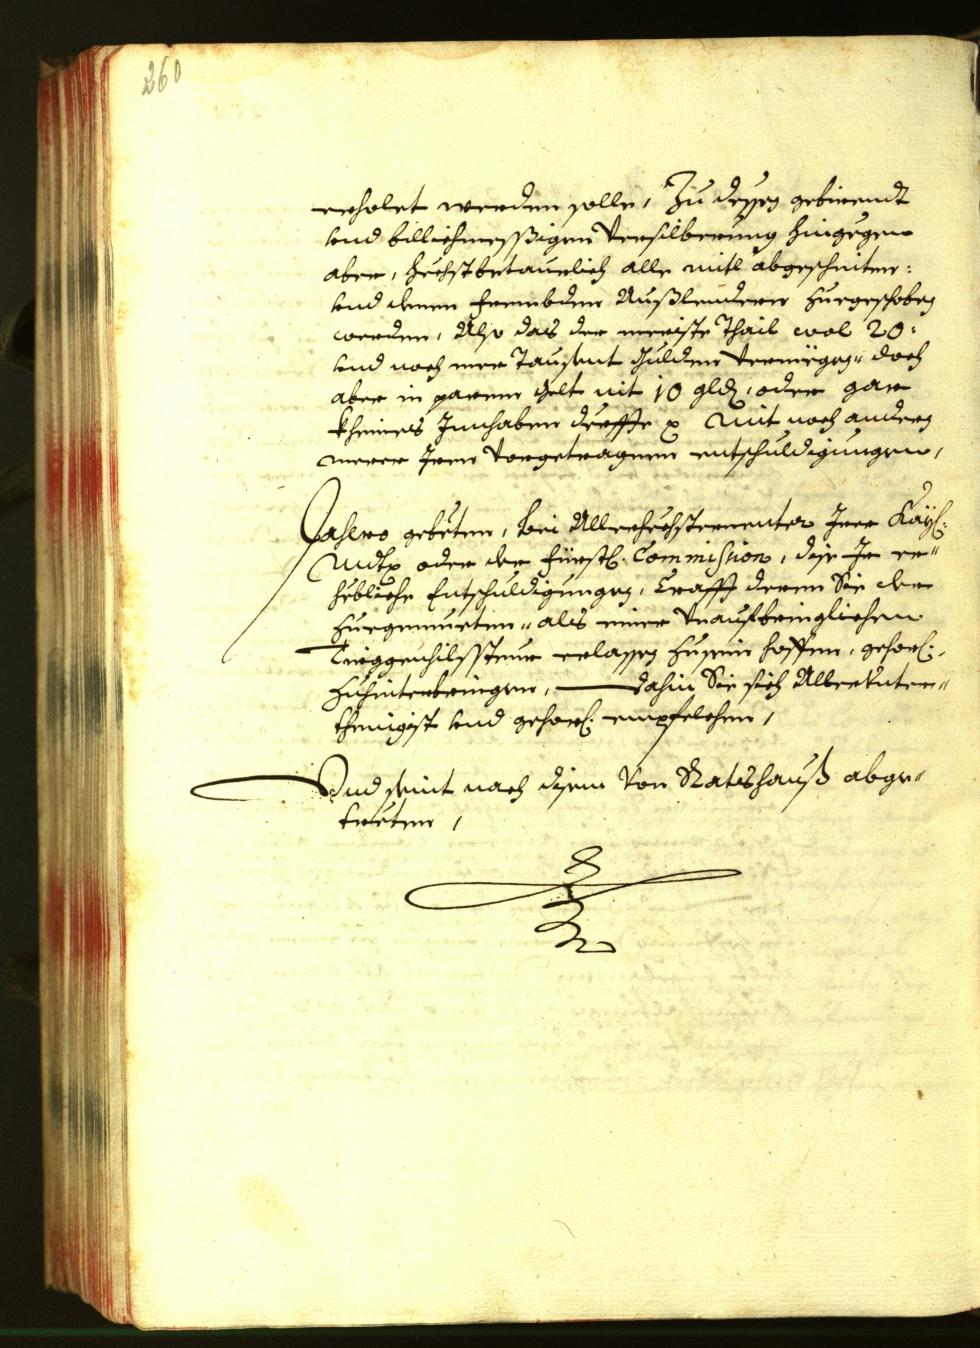 260
erholet werden solle, Zu dessen gebirendt
vnd billichmessßigen Versilberung hingegen
aber, hechstbetaurlich alle mitl abgeschniten:
vnd denen frembden Außlendern hergeschoben
werden, Also das der meiste Thail wol 20:
vnd noch mer Tausent Gulden Vermögen- doch
aber in parem Gelt nit 10 gld. oder gar
kheines Innhaben derffte Mit noch andern
merer Irer Vorgetragnen entschuldigungen,
gebeten, bei Allerhechsternenter Irer Kaÿ:
Mt oder der Fürstl: Commission, dise Ir er-
hebliche Entschuldigungen, Crafft deren Sie der
- als einer Vnaufbringlichen
Trieggenhilfssteur erlassen zusein hoffen, gehors:
zuhinterbringen, dahin Sie sich Allervnter-
thenigist vnd gehors: empfelchen,
Vnd seint nach disem von Ratshauß abge-
treten,